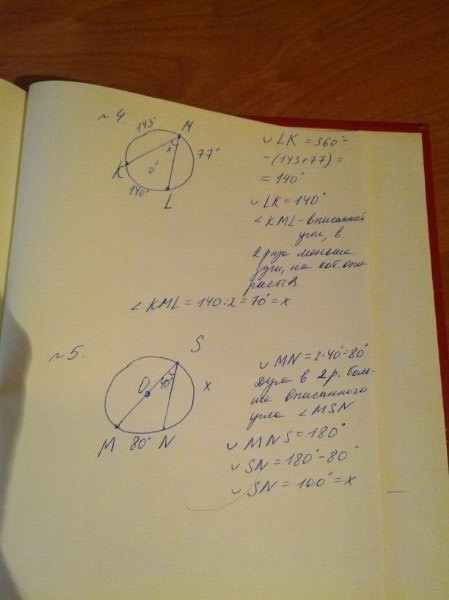 №4.
143°
M
x
77°
K
0
140°
L
∪ LK = 360° -
-(143+77) =
= 140°
∪ LK = 140°
∠ KML - вписанный
угол, в
2 раза меньше
дуги, на кот. опи
рается
∠ KML = 140:2 = 70° = x
№5.
S
O
40°
x
M
80°
N
∪ MN = 2·40° = 80°
дуга в 2 р. боль-
ше вписанного
угла ∠ MSN
∪ MNS = 180°
∪ SN = 180° - 80°
∪ SN = 100° = x